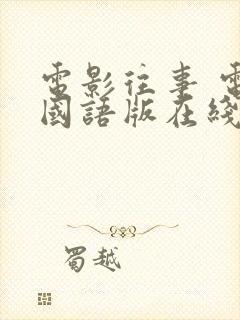 電影往事 電
國語版在綫
蜀越